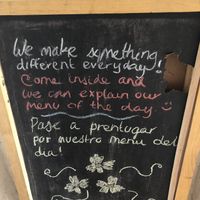 We make something
different everyday!
Come inside and
we can explain our
menu of the day
Pase a prentugar
por nuestro menu del
dia!